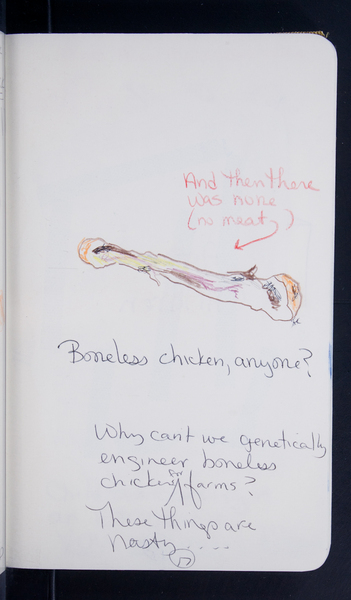 And then there
was none
(no meat)
Boneless chicken, anyone?
Why can't we genetically
engineer boneless
chicken for farms?
These things are
nasty....